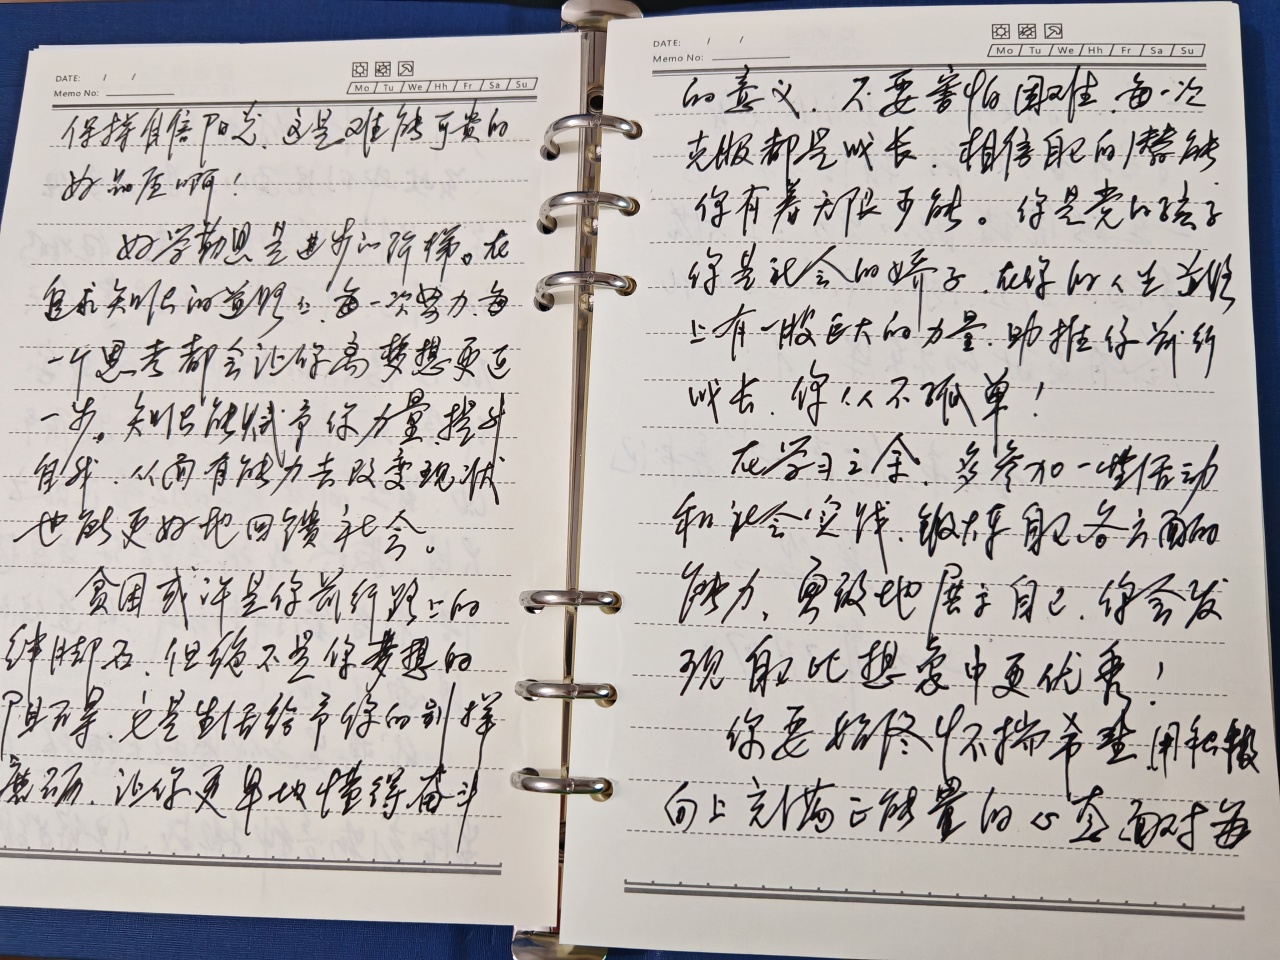 DATE: / /
Memo No:
Mo / Tu / We / Hh / Fr / Sa / Su
保持自信阳光,这是难能可贵的
好品质啊!
好学勤思是进步的阶梯。在
追求知识的道路上,每一次努力,每
一个思考都会让你离梦想更近
一步。知识能赋予你力量,提升
自我,从而有能力去改变现状
也能更好地回馈社会。
贫困或许是你前行路上的
绊脚石,但绝不是你梦想的
阻碍,它是生活给予你的别样
磨砺,让你更早地懂得奋斗
DATE: / /
Memo No:
Mo / Tu / We / Hh / Fr / Sa / Su
的意义,不要害怕困难,每一次
克服都是成长,相信自己的潜能
你有着无限可能。你是党的孩子
你是社会的娇子,在你的人生道路
上有一股巨大的力量,助推你前行
成长,你从不孤单!
在学习之余,多参加一些活动
和社会实践,锻炼自己各方面的
能力,勇敢地展示自己,你会发
现自己比想象中更优秀!
你要始终怀揣希望,用积极
向上充满正能量的心态面对每